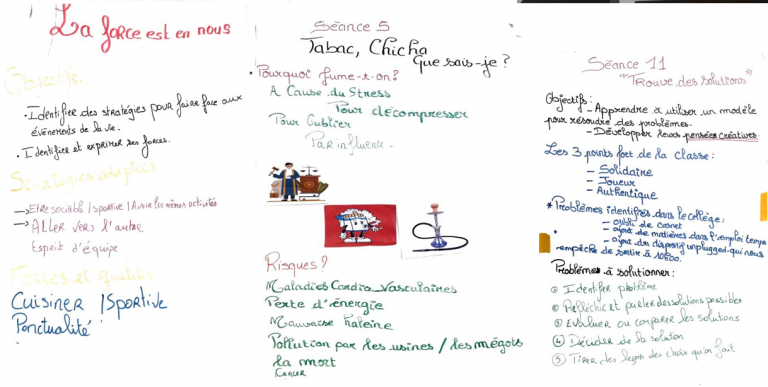 La force est en nous
Objectifs:
• Identifier des stratégies pour faire face aux
événements de la vie.
• Identifier et exprimer ses forces.
Stratégies adaptées
→ Etre sociable / sportive / Avoir les mêmes activités
→ Aller vers l'autre
Esprit d'équipe
Forces et qualités
Cuisiner / Sportive
Ponctualité
Séance 5
Tabac, Chicha
Que sais-je ?
• Pourquoi fume-t-on?
A Cause du Stress
Pour décompresser
Pour Oublier
Par influence.
Risques?
Maladies Cardio-Vasculaires
Perte d'énergie
Mauvaise haleine
Pollution par les usines / les mégots
la mort
Cancer
Séance 11
"Trouve des solutions"
Objectifs:
- Apprendre à utiliser un modèle
pour résoudre des problèmes.
- Développer leurs pensées créatives
Les 3 points fort de la classe:
- Solidaire
- Joueur
- Authentique
* Problèmes identifiés dans le collège:
- oubli de carnet
- ajout de matières dans l'emploi temps
- ajout du dispositif unplugged qui nous
empêche de sortir à
Problèmes à solutionner:
① Identifier problème
② Réfléchir et parler des solutions possibles
③ Evaluer ou comparer les solutions
④ Décider de la solution
⑤ Tirer des leçons des choix qu'on fait